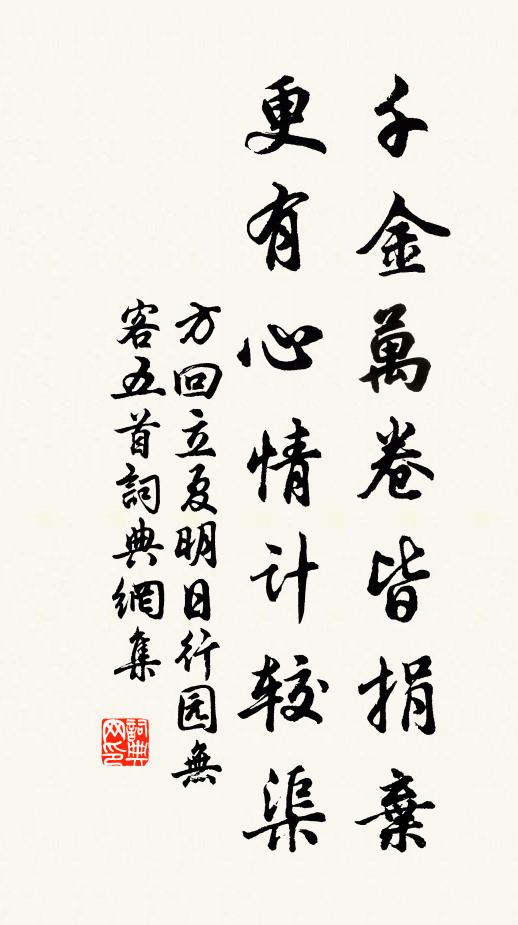 千金萬卷皆捐棄
更有心情计较渠
方回立夏明日行园無
客五首詞典網集
詞典
网印